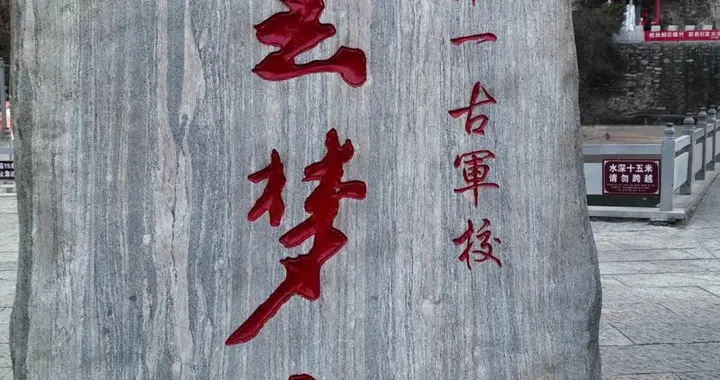 一古軍校
云梦
水深十五米
请勿跨越